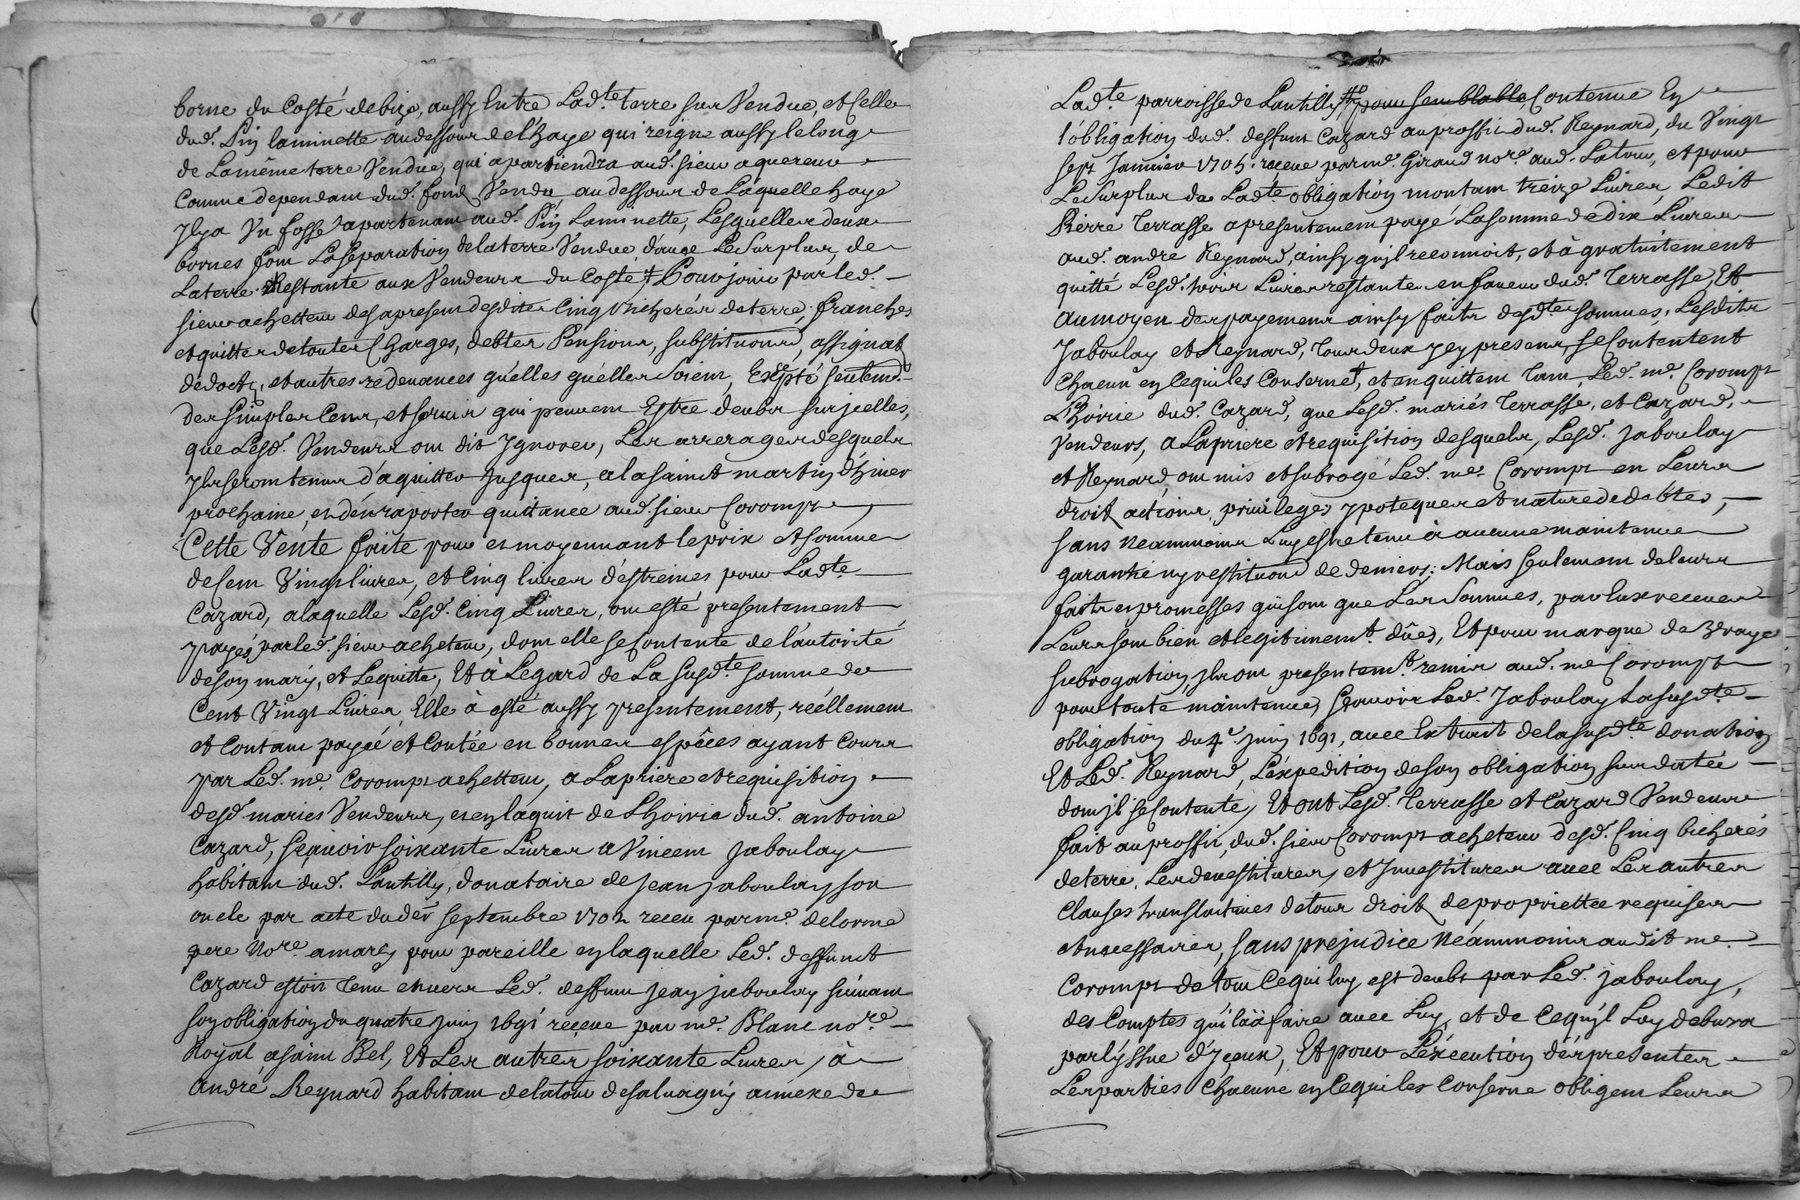 borne du Costé debize, aussy Entre Lad.te terre sus Vendue, et Celle
dud. Pin laminette audessous de l'haye qui reigne aussy le long
de La même terre Vendue, qui apartiendra aud. sieur aquereur
Comme dependam dud. fond Vendu, au dessous de Laquelle haye
Il y a Vn fossé apartenam aud. Pin Laminette, Lesquelles deux
bornes font La Separation de la terre Vendue d'auec Le Surplus, de
La terre Restante aux Vendeurs du Costé Pour jouir par led.
sieur achetteur des apresent desdites Cinq bicherés de terre, franches
et quittes de toutes Charges, debtes Pensions, substitutions, assignat
de dost, et autres redeuances qu'elles qu'elles Soient, Excepté seulem.
des simples Cens, et seruis qui peuuem Estre deubs sur jcelles,
que Lesd. Vendeurs ont dit Ignorer, Les arrerages desquels
Ils seront tenus d'aquitter Jusques, a la saint martin d'hiuer
prochaine, et d'en raporter quittance aud. sieur Corompt
Cette Vente faite pour et moyennant le prix et somme
de Cent Vingt liures, et Cinq liures d'estreines pour Lad.te
Cazard, a laquelle Lesd. Cinq Liures, ont esté presentement
payés par led. sieur acheteur, dont elle se Contente de l'autorité
de son mary, et Lequitte, Et à Legard de La susd.te somme de
Cent Vingt Liures, Elle à esté aussy presentement, réellement
et Contant payée et Contée en bonnes espêces ayant Cours
par Led. m.e Corompt achetteur, a La priere et requisition
desd. mariés Vendeurs, et en l'aquit de L'hoirie dud. antoine
Cazard, sçauoir soixante Liures a Vincent Jaboulay
habitant dud. Lantilly, donataire de Jean jaboulay son
oncle par acte du der septembre 1702 receu par m.e delorme
pere No.re amary pour pareille en laquelle Led. deffunct
Cazard estoit Tenu enuers Led. deffunt Jean jaboulay suiuant
son obligation du quatre Juin 1691 receue par m.e Blanc no.re
Royal a Saint Bel, Et Les autres soixante Liures, à
André Reynard habitant de latour de saluagny annexe de
Lad.te parroisse de Lantilly, pour semblable Contenue En
l'obligation dud. deffunt Cazard au proffit dud. Reynard, du Vingt
sept Januier 1705. receue par m.e Giraud no.re aud. Latour, et pour
Le Surplus de Lad.te obligation montant treize Liures, Ledit
Pierre Terrasse a presentement payé La somme de dix Liures
aud. andre Reynard, ainsy qu'il reconnoit, et à gratuitement
quitté Lesd. trois Liures restantes en faueur dud. Terrasse, Et
au moyen des payemens ainsy faits desd.tes sommes, Lesdits
Jaboulay et Reynard, Tous deux Icy presens, se Contentent
Chacun en Ce qui les Conserne, et en quittent Tant, Led. m.e Corompt
L'hoirie dud. Cazard, que Lesd. mariés Terrasse, et Cazard,
Vendeurs, a La priere et requisition desquels, Lesd. Jaboulay
et Reynard, ont mis et subrogé Led. m.e Corompt en Leurs
droits, actions, priuileges ypoteques et nature de debtes,
sans Neammoins Luy estre tenu à aucune maintenue
garantie ny restitution de deniers; Mais seulement de leurs
faits et promesses qui sont que Les Sommes, par Eux receues
Leurs sont bien et legitiment dües, Et pour marque de Vraye
subrogation, Ils ont presentem.t remis aud. m.e Corompt
pour toute maintenue, Sçauoir Led. Jaboulay La susd.te
obligation du 4.e Juin 1691, auec Extrait de la susd.te donation
Et Led. Reynard, L'expedition de son obligation sus datée
dont jl se Contente, Et ont Lesd. Terrasse et Cazard Vendeurs
fait au proffit, dud. sieur Corompt acheteur desd. Cinq bicherés
de terre, Les deuestitures, et Inuestitures auec Les autres
Clauses translatiues de tous droits de proprietée requises
et necessaires, sans prejudice Néammoins audit m.e
Corompt de tout Ce qui luy est deubt par Led. jaboulay,
des Comptes qu'il a à faire auec Luy, et de Ce qu'jl Luy debura
par lyssue d'yceux, Et pour L'éxécution des presentes
Les parties Chacune en Ce qui les Conserne obligent Leurs